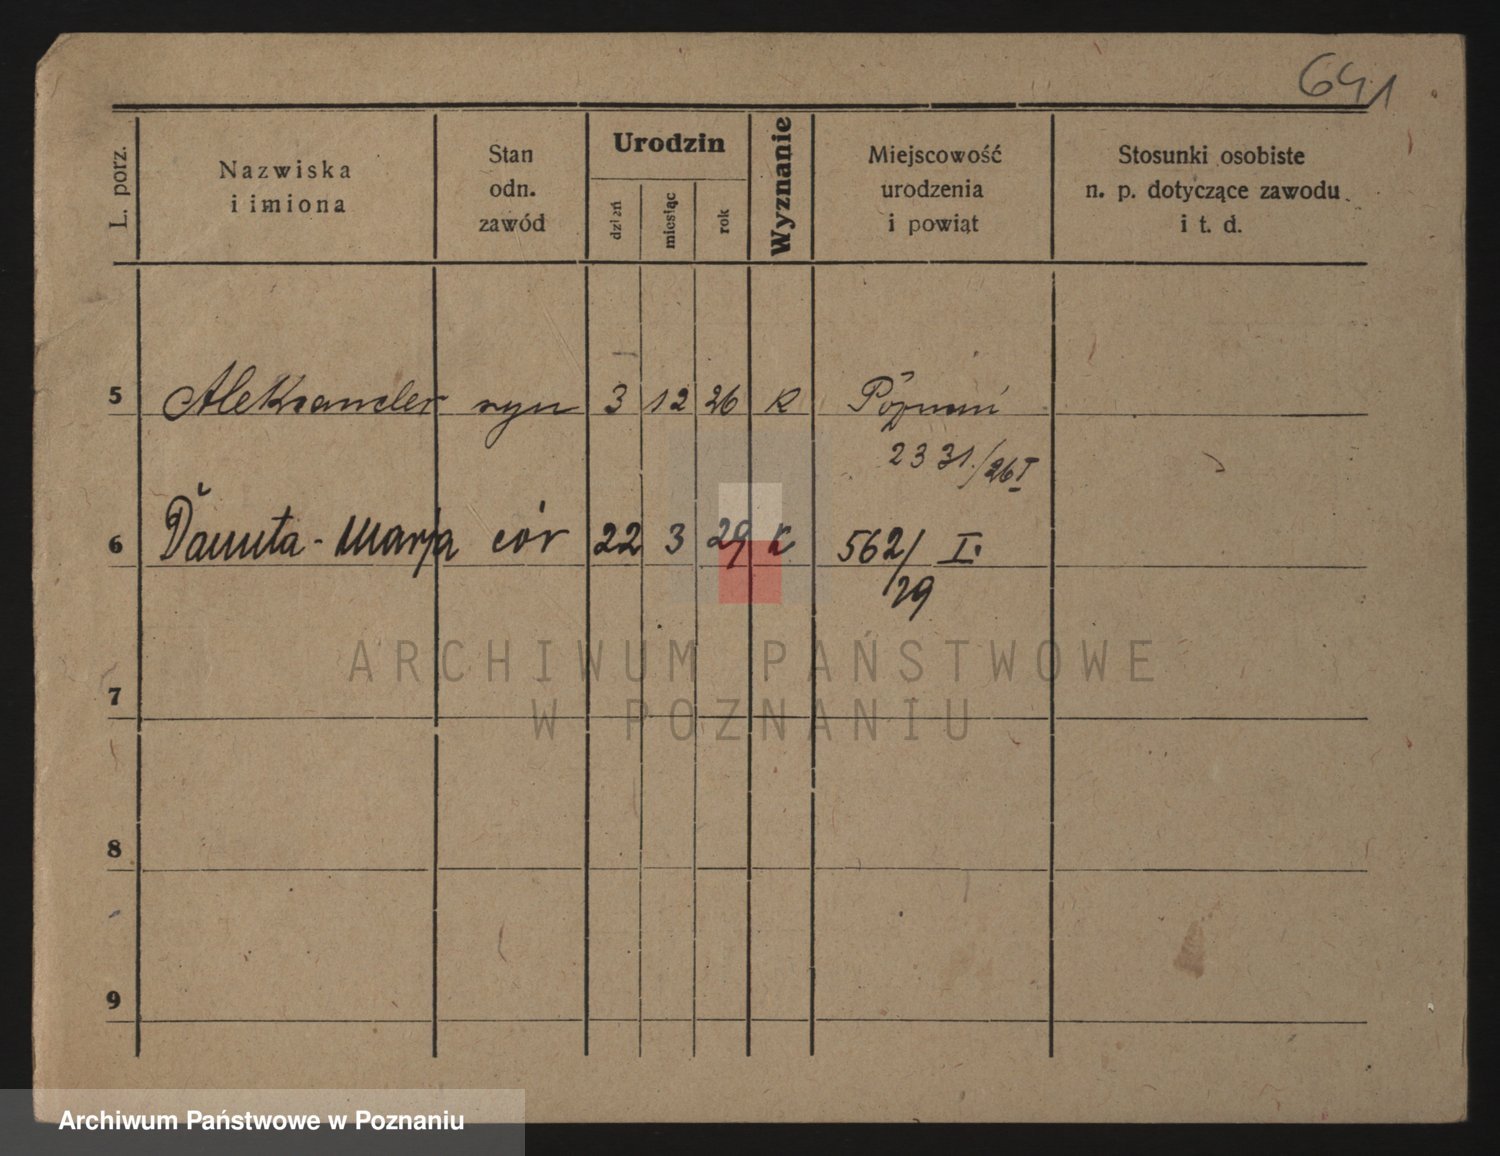 641
L. porz.
Nazwiska
i imiona
Stan
odn.
zawód
Urodzin
dzień
miesiąc
rok
Wyznanie
Miejscowość
urodzenia
i powiąt
Stosunki osobiste
n. p. dotyczące zawodu
i t. d.
5 Aleksander syn 3 12 26 K Poznań
2331/26 I
6 Danuta-Marja cór 22 3 29 K 562/ I.
29
ARCHIWUM PAŃSTWOWE
W POZNANIU
7
8
9
Archiwum Państwowe w Poznaniu